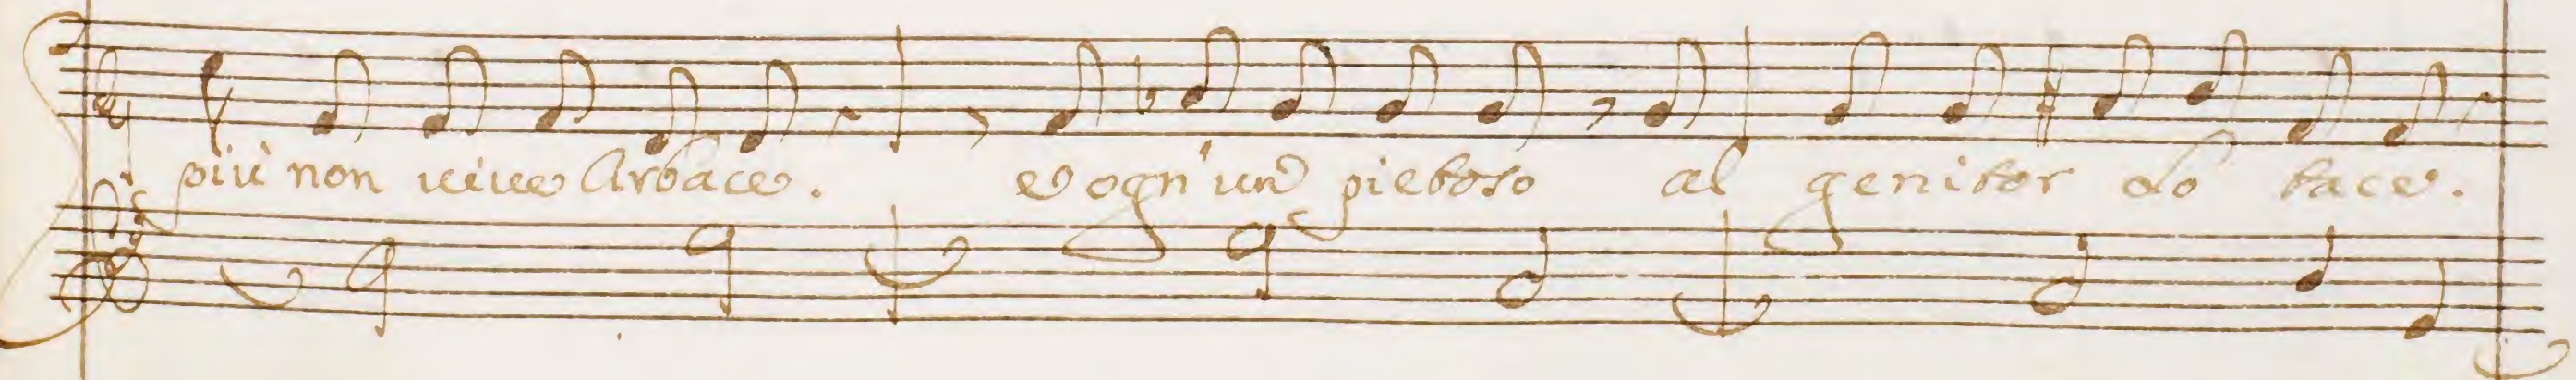 più non uiue Arbace. e ogn'un pietoso al genitor lo tace.